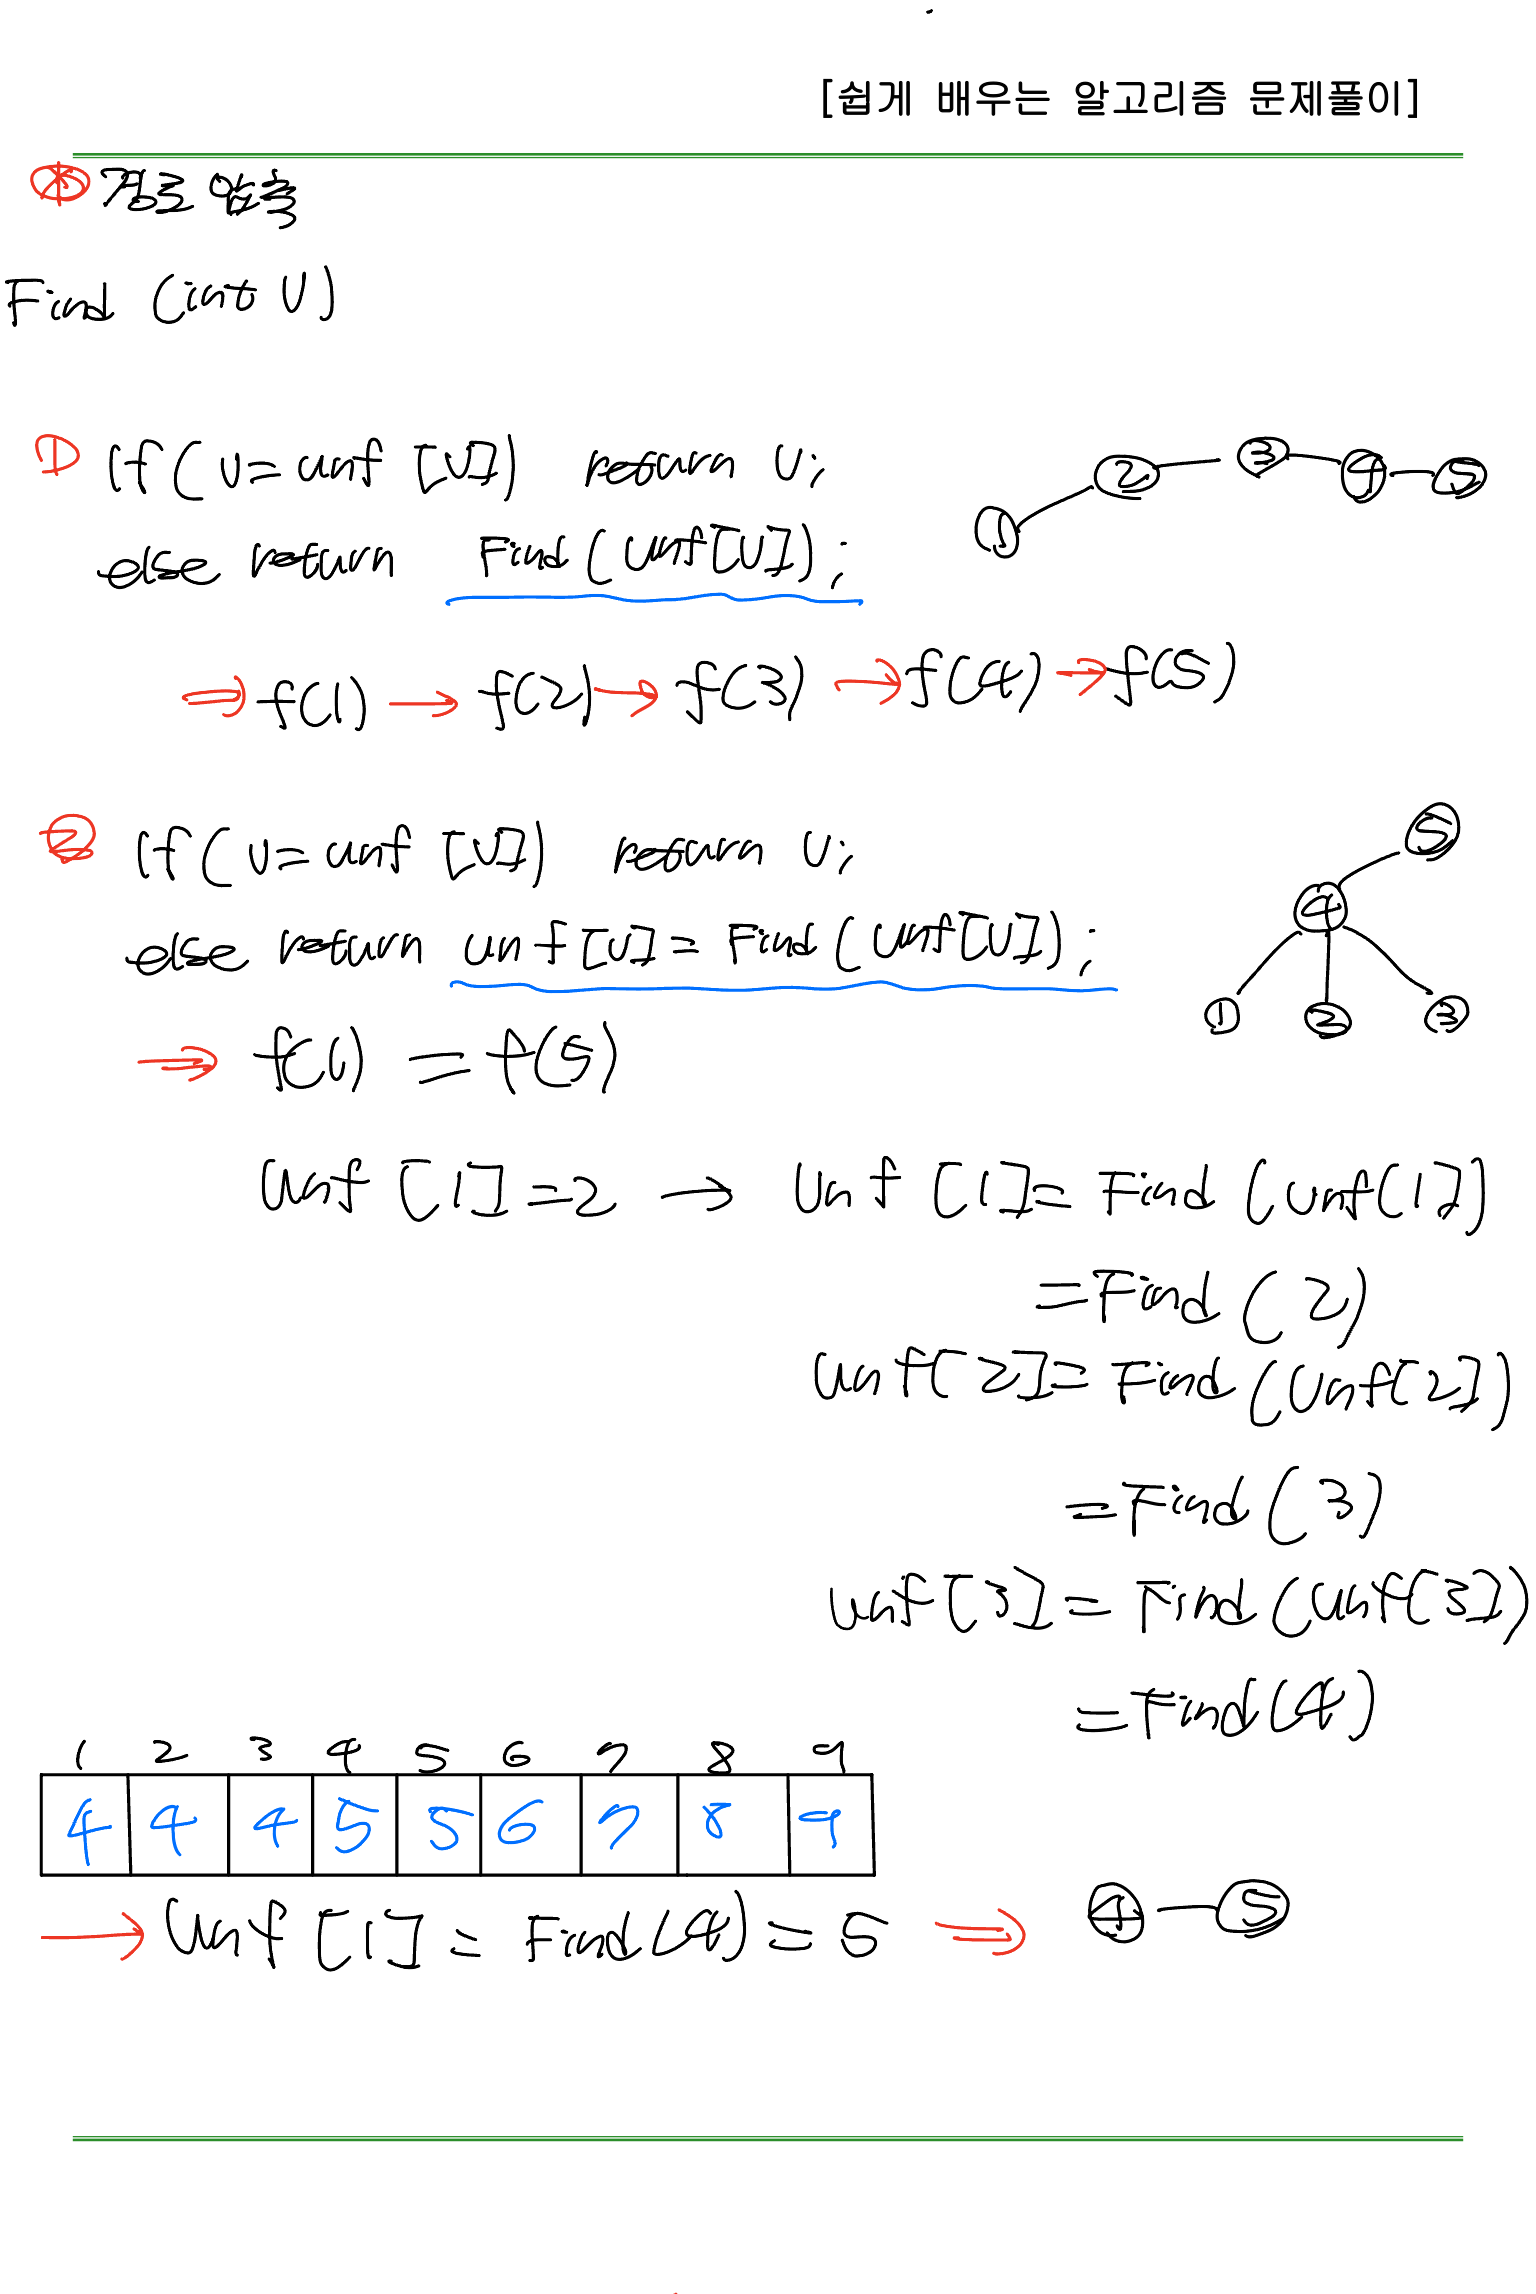 [쉽게 배우는 알고리즘 문제풀이]
* 경로 압축
Find (int v)
① If( v= unf [v]) return v;
else return Find(unf[v]);
1 2 3 4 5
⇒ f(1) → f(2) → f(3) → f(4) → f(5)
② If( v= unf [v]) return v;
else return unf[v] = Find(unf[v]);
5
4
1 2 3
⇒ f(1) = f(5)
unf [1]=2 → unf [1]= Find (unf[1])
=Find (2)
unf[2]= Find (unf[2])
=Find (3)
unf[3] = Find (unf[3])
=Find(4)
1 2 3 4 5 6 7 8 9
4 4 4 5 5 6 7 8 9
→ unf [1] = Find(4) = 5 ⇒ 4 5